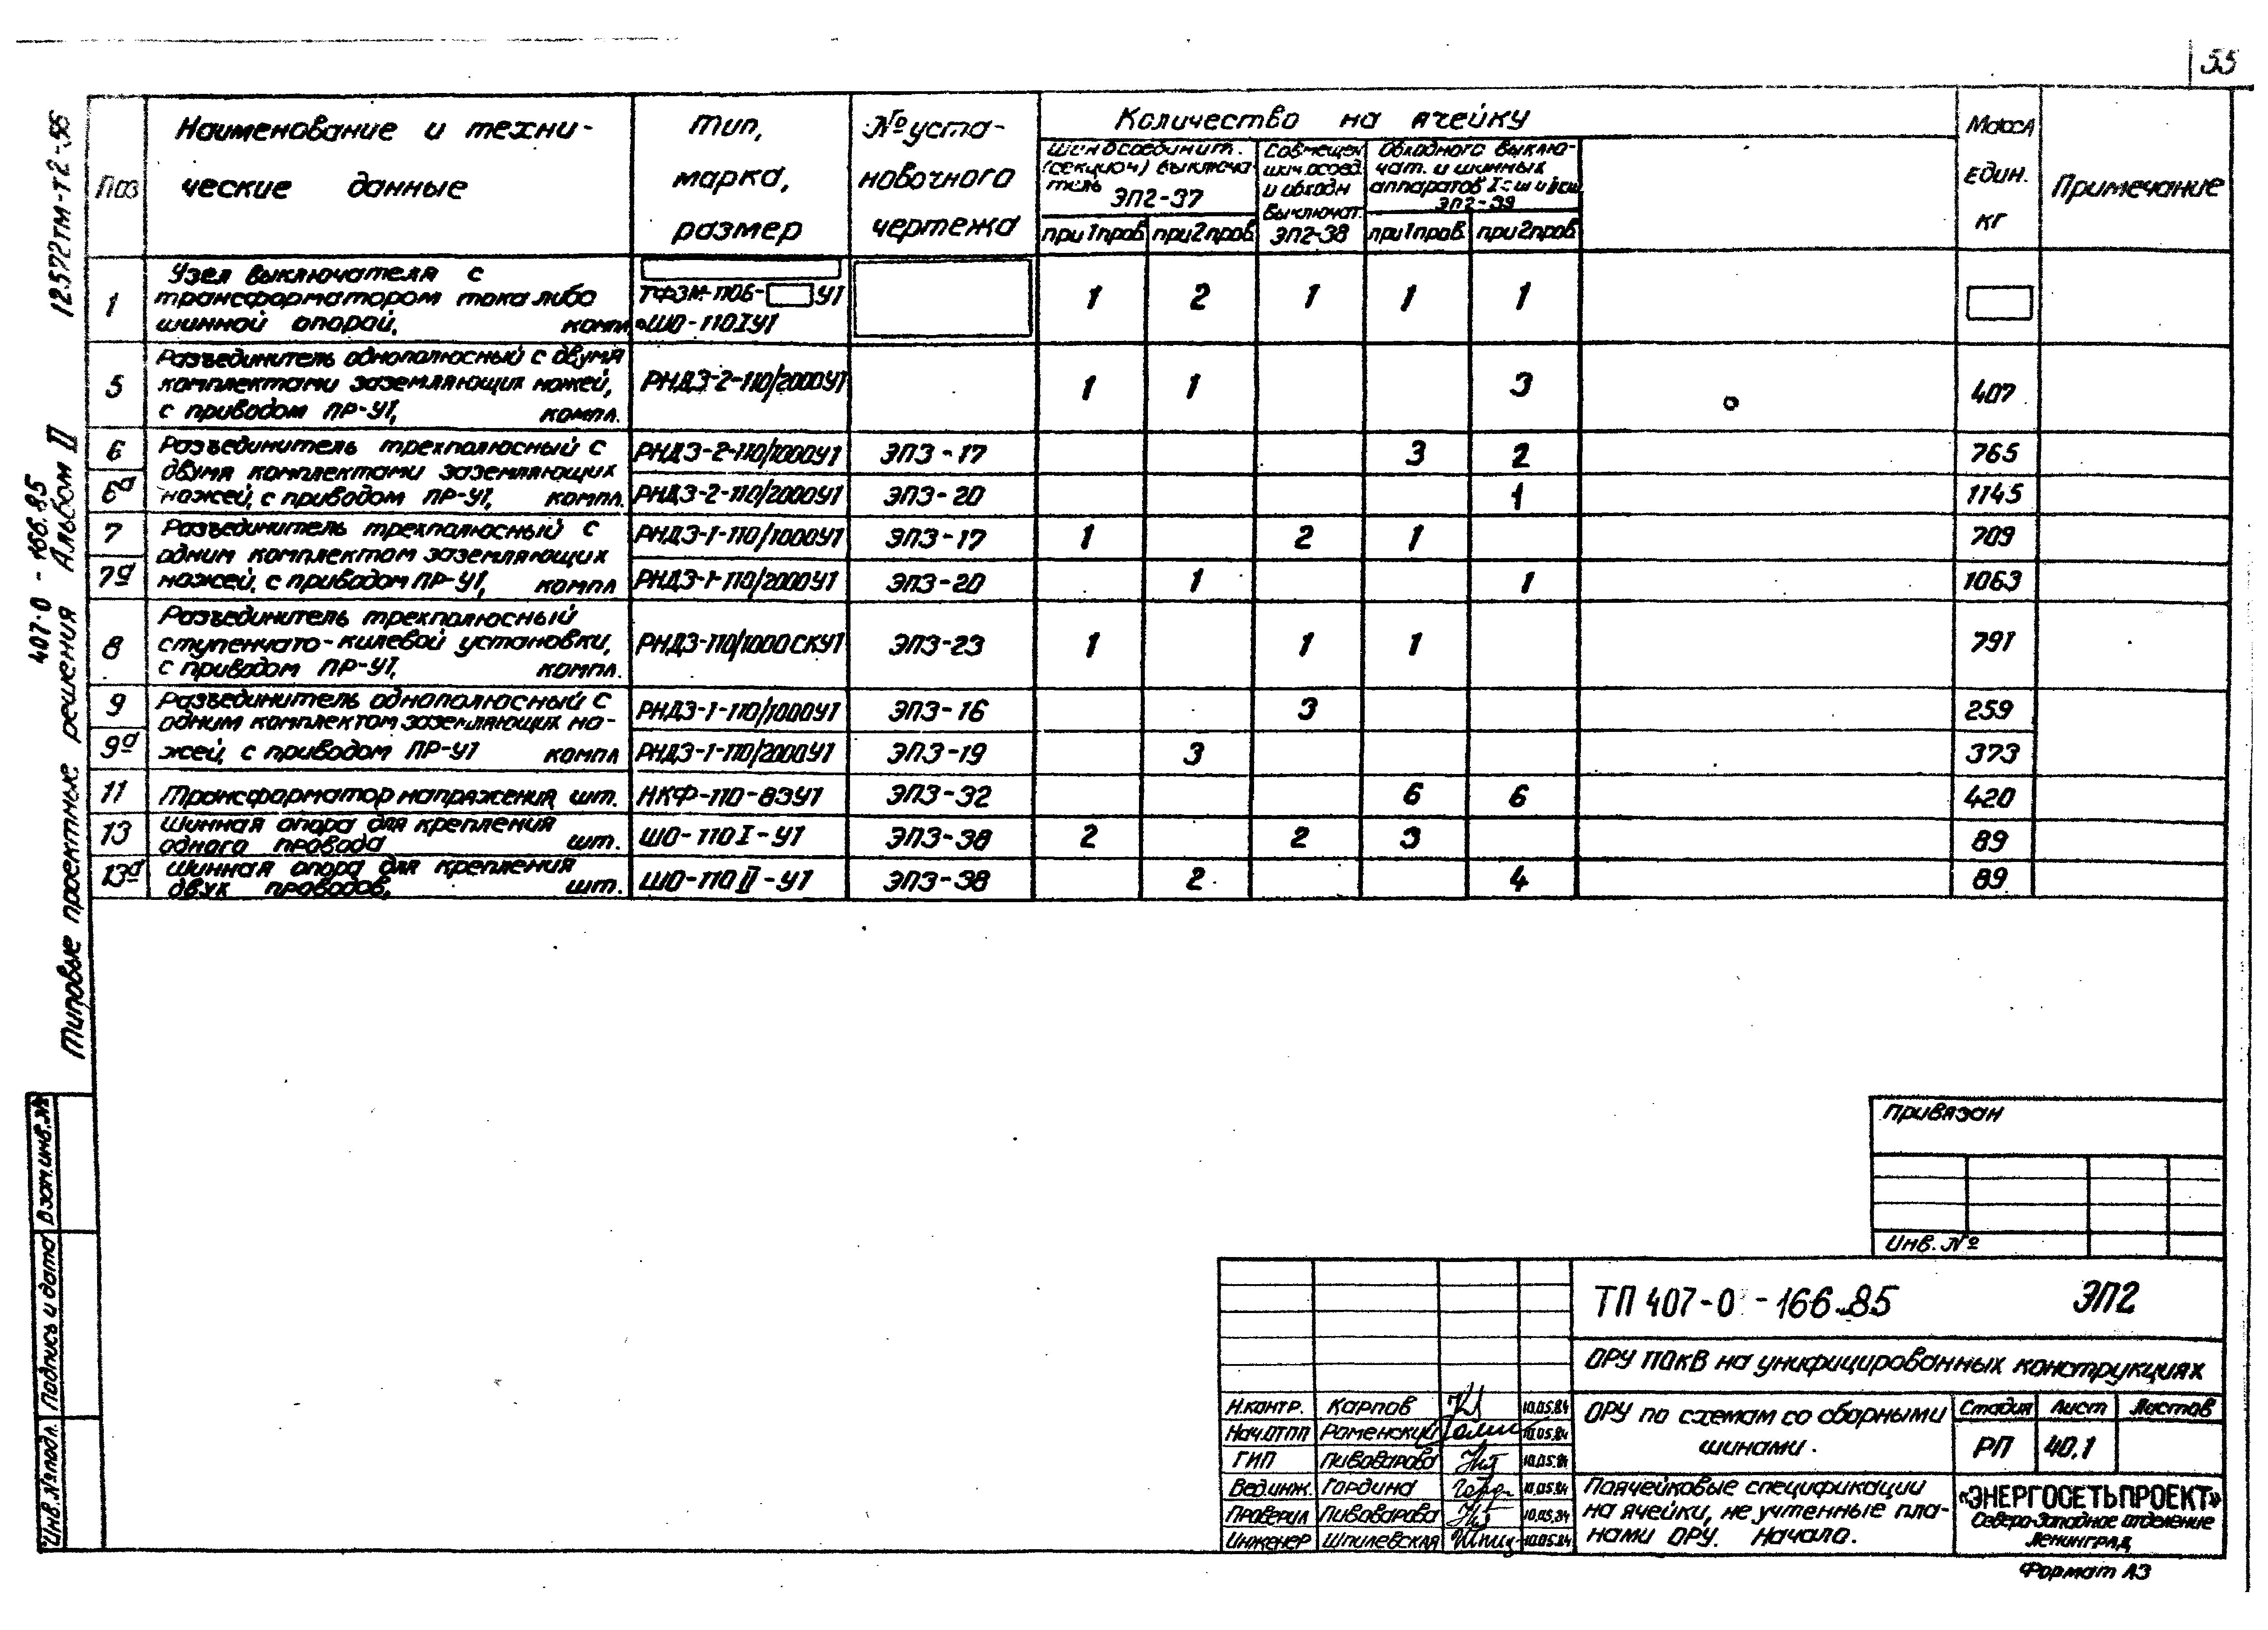 55
12572тм-т2-55
407-0-166.85
Типовые проектные решения Альбом II
Поз
Наименование и техни-
ческие данные
Тип,
марка,
размер
№ уста-
новочного
чертежа
Количество на ячейку
Шиносоединит.
(секцион) выключа-
тель
ЭП2-37
при 1 пров
при 2 пров.
Совмещен
шин. осоед.
и обходн
выключат.
ЭП2-38
Обходного выклю-
чат. и шинных
аппаратов I с ш и II сш
ЭП2-39
при 1 пров.
при 2 пров.
Масса
един.
кг
Примечание
1 Узел выключателя с
трансформатором тока либо ТФЗМ-110Б- У1 1 2 1 1 1
шинной опорой, компл. ШО-110IУ1
Разъединитель однополюсный с двумя
5 комплектами заземляющих ножей, РНДЗ-2-110/2000У1 1 1 3 407
с приводом ПР-У1, компл.
6 Разъединитель трехполюсный с РНДЗ-2-110/1000У1 ЭП3-17 3 2 765
двумя комплектами заземляющих
6а ножей, с приводом ПР-У1, компл. РНДЗ-2-110/2000У1 ЭП3-20 1 1145
7 Разъединитель трехполюсный с РНДЗ-1-110/1000У1 ЭП3-17 1 2 1 709
одним комплектом заземляющих
7а ножей, с приводом ПР-У1, компл РНДЗ-1-110/2000У1 ЭП3-20 1 1 1063
Разъединитель трехполюсный
8 ступенчато-килевой установки, РНДЗ-110/1000СКУ1 ЭП3-23 1 1 1 791
с приводом ПР-У1, компл.
9 Разъединитель однополюсный с РНДЗ-1-110/1000У1 ЭП3-16 3 259
одним комплектом заземляющих но-
9а жей, с приводом ПР-У1 компл РНДЗ-1-110/2000У1 ЭП3-19 3 373
11 Трансформатор напряжения, шт. НКФ-110-83У1 ЭП3-32 6 6 420
13 Шинная опора для крепления
одного провода шт. ШО-110I-У1 ЭП3-38 2 2 3 89
13а Шинная опора для крепления
двух проводов, шт. ШО-110II-У1 ЭП3-38 2 4 89
Взам.инв.№
Подпись и дата
Инв.№подл.
Привязан
Инв. №
ТП 407-0-166.85 ЭП2
ОРУ 110кВ на унифицированных конструкциях
Н.контр. Карпов 10.05.84
Нач.ОТПП Роменский 10.05.84
ГИП Пивоварова 10.05.84
Вед.инж. Гордина 10.05.84
Проверил Пивоварова 10.05.84
Инженер Шпилевская 10.05.84
ОРУ по схемам со сборными
шинами.
Стадия Лист Листов
РП 40.1
Поячейковые спецификации
на ячейки, не учтенные пла-
нами ОРУ. Начало.
«ЭНЕРГОСЕТЬПРОЕКТ»
Северо-Западное отделение
Ленинград
Формат А3